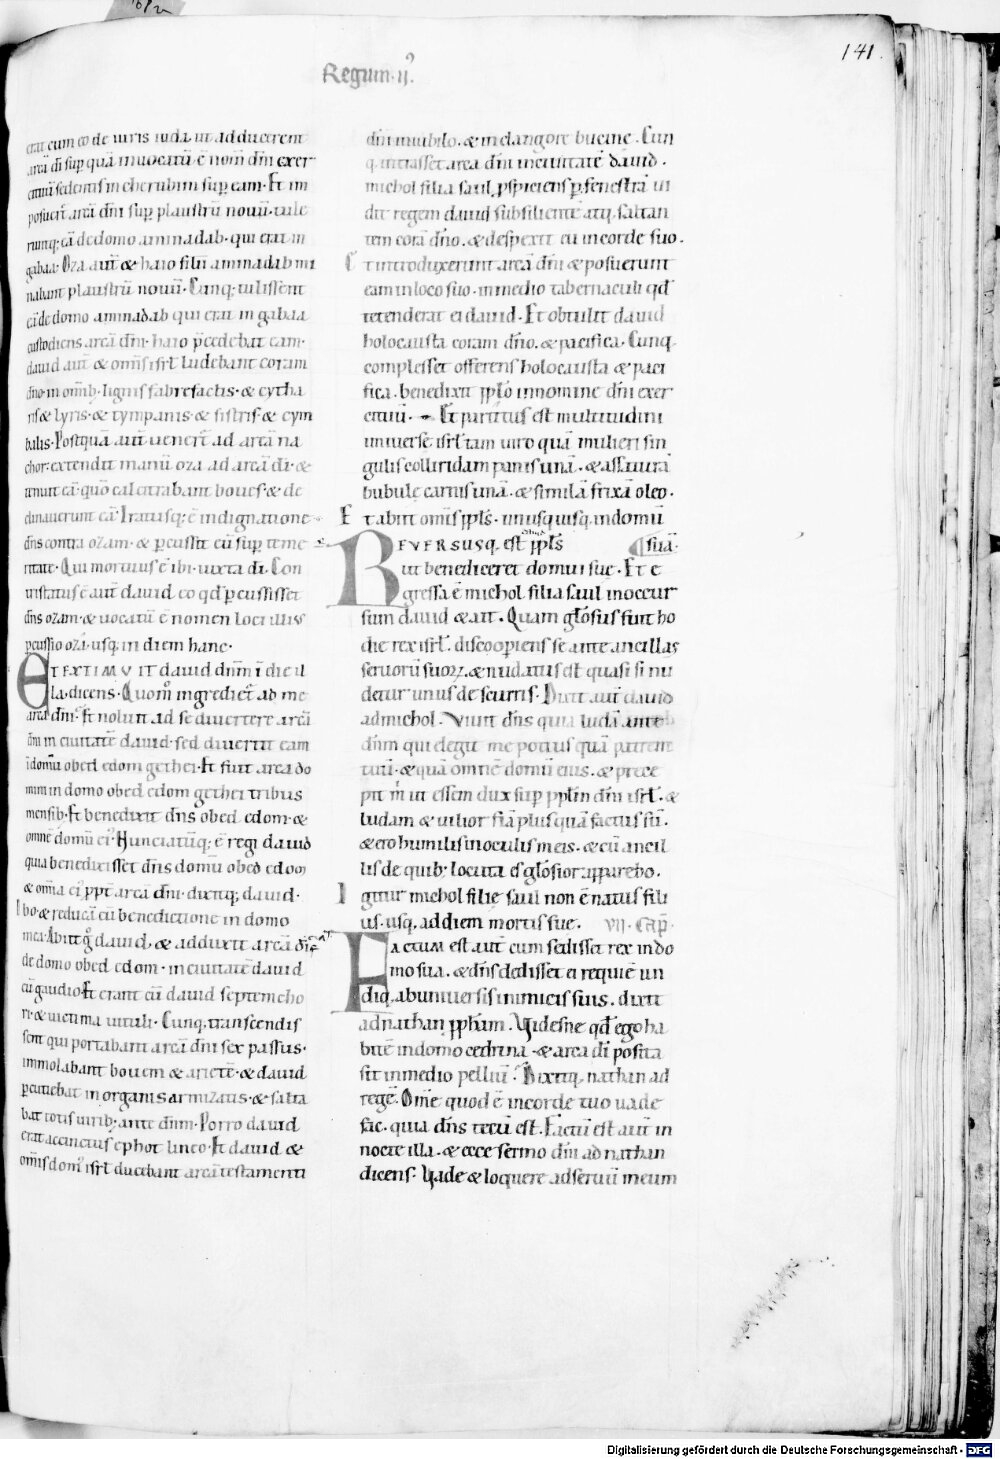 141.
Regum · ij.
erat cum eo de uiris iuda. ut adducerent
arcā dī sup quā inuocatū ē nom̄ dn̄i exer
cituū sedentis in cherubim sup eam · Et im
posuer̄t arcā dn̄i sup plaustrū nouū · tule
runtq; eā de domo aminadab · qui erat in
gabaa · Oza aut̄ & haio filii aminadab mi
nabant plaustrū nouū · Cunq; tulissent
eā de domo aminadab qui erat in gabaa
custodiens arcā dn̄i · haio p̄cedebat eam ·
dauid aut̄ & omīs isrl̄ ludebant coram
dn̄o · in omīb; lignis fabrefactis · & cytha
ris & lyris · & tympanis · & sistris · & cym
balis · Postquā aut̄ uener̄t ad areā na
chor: extendit manū oza ad arcā dī · &
tenuit eā · quō calcitrabant boues · & de
clinauerunt eā · Iratusq; ē indignatione
dn̄s contra ozam · & pcussit eū sup teme
ritate · Qui mortuus ē ibi · iuxta dī · Con
tristatus ē aut̄ dauid eo qd̄ pcussisset
dn̄s ozam · & uocatū ē nomen loci illius
pcussio oza · usq; in diem hanc ·
ET EXTIMUIT dauid dn̄m ī die il
la · dicens · Quom̊ ingrediet̄ ad me
arca dn̄i · Et noluit ad se diuertere arcā
dn̄i in ciuitatē dauid · sed diuertit eam
ī domū obed edom gethei · Et fuit arca do
mini in domo obed edom gethei tribus
mensib; Et benedixit dn̄s obed edom · &
omnē domū ei᾽ Nunciatūq; ē regi dauid
quia benedixisset dn̄s domū obed edom
& omīa ei᾽ ppt̄ arcā dn̄i · dixitq; dauid ·
Ibo · & reducā eū benedictione in domo
mea · Abiit g̊ dauid, & adduxit arcā dī
de domo obed edom · in ciuitatē dauid
cū gaudio · Et erant cū dauid septem cho
ri · & uictima uituli · Cunq, transcendis
sent qui portabant arcā dn̄i sex passus ·
immolabant bouem & arietē · & dauid
pcutiebat in organis armizatis · & salta
bat totis uirib; ante dn̄m · Porro dauid
erat accinctus ephot lineo · Et dauid &
omīs dom᾽ isrl̄ ducebant arcā testamenti
dn̄i in iubilo · & in clangore bucine · Cun
q, intrasset arca dn̄i in ciuitatē dauid ·
michol filia saul, pspiciens p fenestrā ui
dit regem dauid subsilientē atq, saltan
tem corā dn̄o · & despexit eū in corde suo ·
Et introduxerunt arcā dn̄i & posuerunt
eam in loco suo · in medio tabernaculi qd̄
tetenderat ei dauid · Et obtulit dauid
holocausta coram dn̄o · & pacifica · Cunq,
complesset offerens holocausta & paci
fica · benedixit pplo in nomine dn̄i exer
cituū · Et partitus est multitudini
uniuerse isrl̄ tam uiro quā mulieri sin
gulis colliridam panis unā · & assaturā
bubule carnis unā · & similā frixā oleo ·
Et abiit omīs ppl̄s · unusquisq, in domū
suā ·
REVERSUSQ, est ppl̄s
dauid
ut benediceret domui sue · Et e
gressa ē michol filia saul in occur
sum dauid & ait · Quam gl̄osus fuit ho
die rex isrl̄ · discooperiens se ante ancillas
seruorū suoꝝ, & nudatus est quasi si nu
detur unus de scurris · Dixit aut̄ dauid
ad michol · Viuit dn̄s quia ludā ante
dn̄m qui elegit me potius quā patrem
tuū · & quā omnē domū eius · & prece
pit m̄ ut essem dux sup ppl̄m dn̄i isrl̄ · &
ludam & uilior fiā plus quā factus sū ·
& ero humilis in oculis meis · & cū ancil
lis de quib; locuta es gl̄osior apparebo ·
Igitur michol filie saul non ē natus fili
us · usq, ad diem mortis sue · VII · Cap̄ ·
FACTUM est aut̄ cum sedisset rex in do
mo sua · & dn̄s dedisset ei requiē un
diq, ab uniuersis inimicis suis · dixit
ad nathan pph̄am · Videsne qd̄ ego ha
bitē in domo cedrina · & arca dī posita
sit in medio pelliū · Dixitq, nathan ad
regē · Om̄e quod ē in corde tuo uade
fac · quia dn̄s tecū est · Factū est aut̄ in
nocte illa · & ecce sermo dn̄i ad nathan
dicens · Vade & loquere ad seruū meum
Digitalisierung gefördert durch die Deutsche Forschungsgemeinschaft - DFG